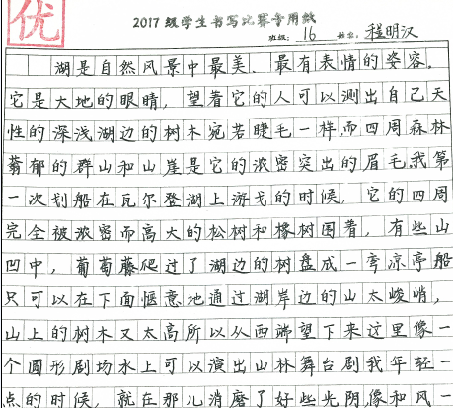 优
2017级学生书写比赛专用纸
班级: 16 姓名: 程明汉
湖是自然风景中最美、最有表情的姿容。
它是大地的眼睛，望着它的人可以测出自己天
性的深浅湖边的树木宛若睫毛一样,而四周森林
蓊郁的群山和山崖是它的浓密突出的眉毛,我第
一次划船在瓦尔登湖上游戈的时候，它的四周
完全被浓密而高大的松树和橡树围着，有些山
凹中，葡萄藤爬过了湖边的树盘成一弯凉亭船
只可以在下面惬意池通过湖岸边的山太峻峭，
山上的树木又太高所以从西端望下来这里像一
个圆形剧场水上可以演出山林舞台剧我年轻一
点的时候，就在那儿消磨了好些光阴像和风一